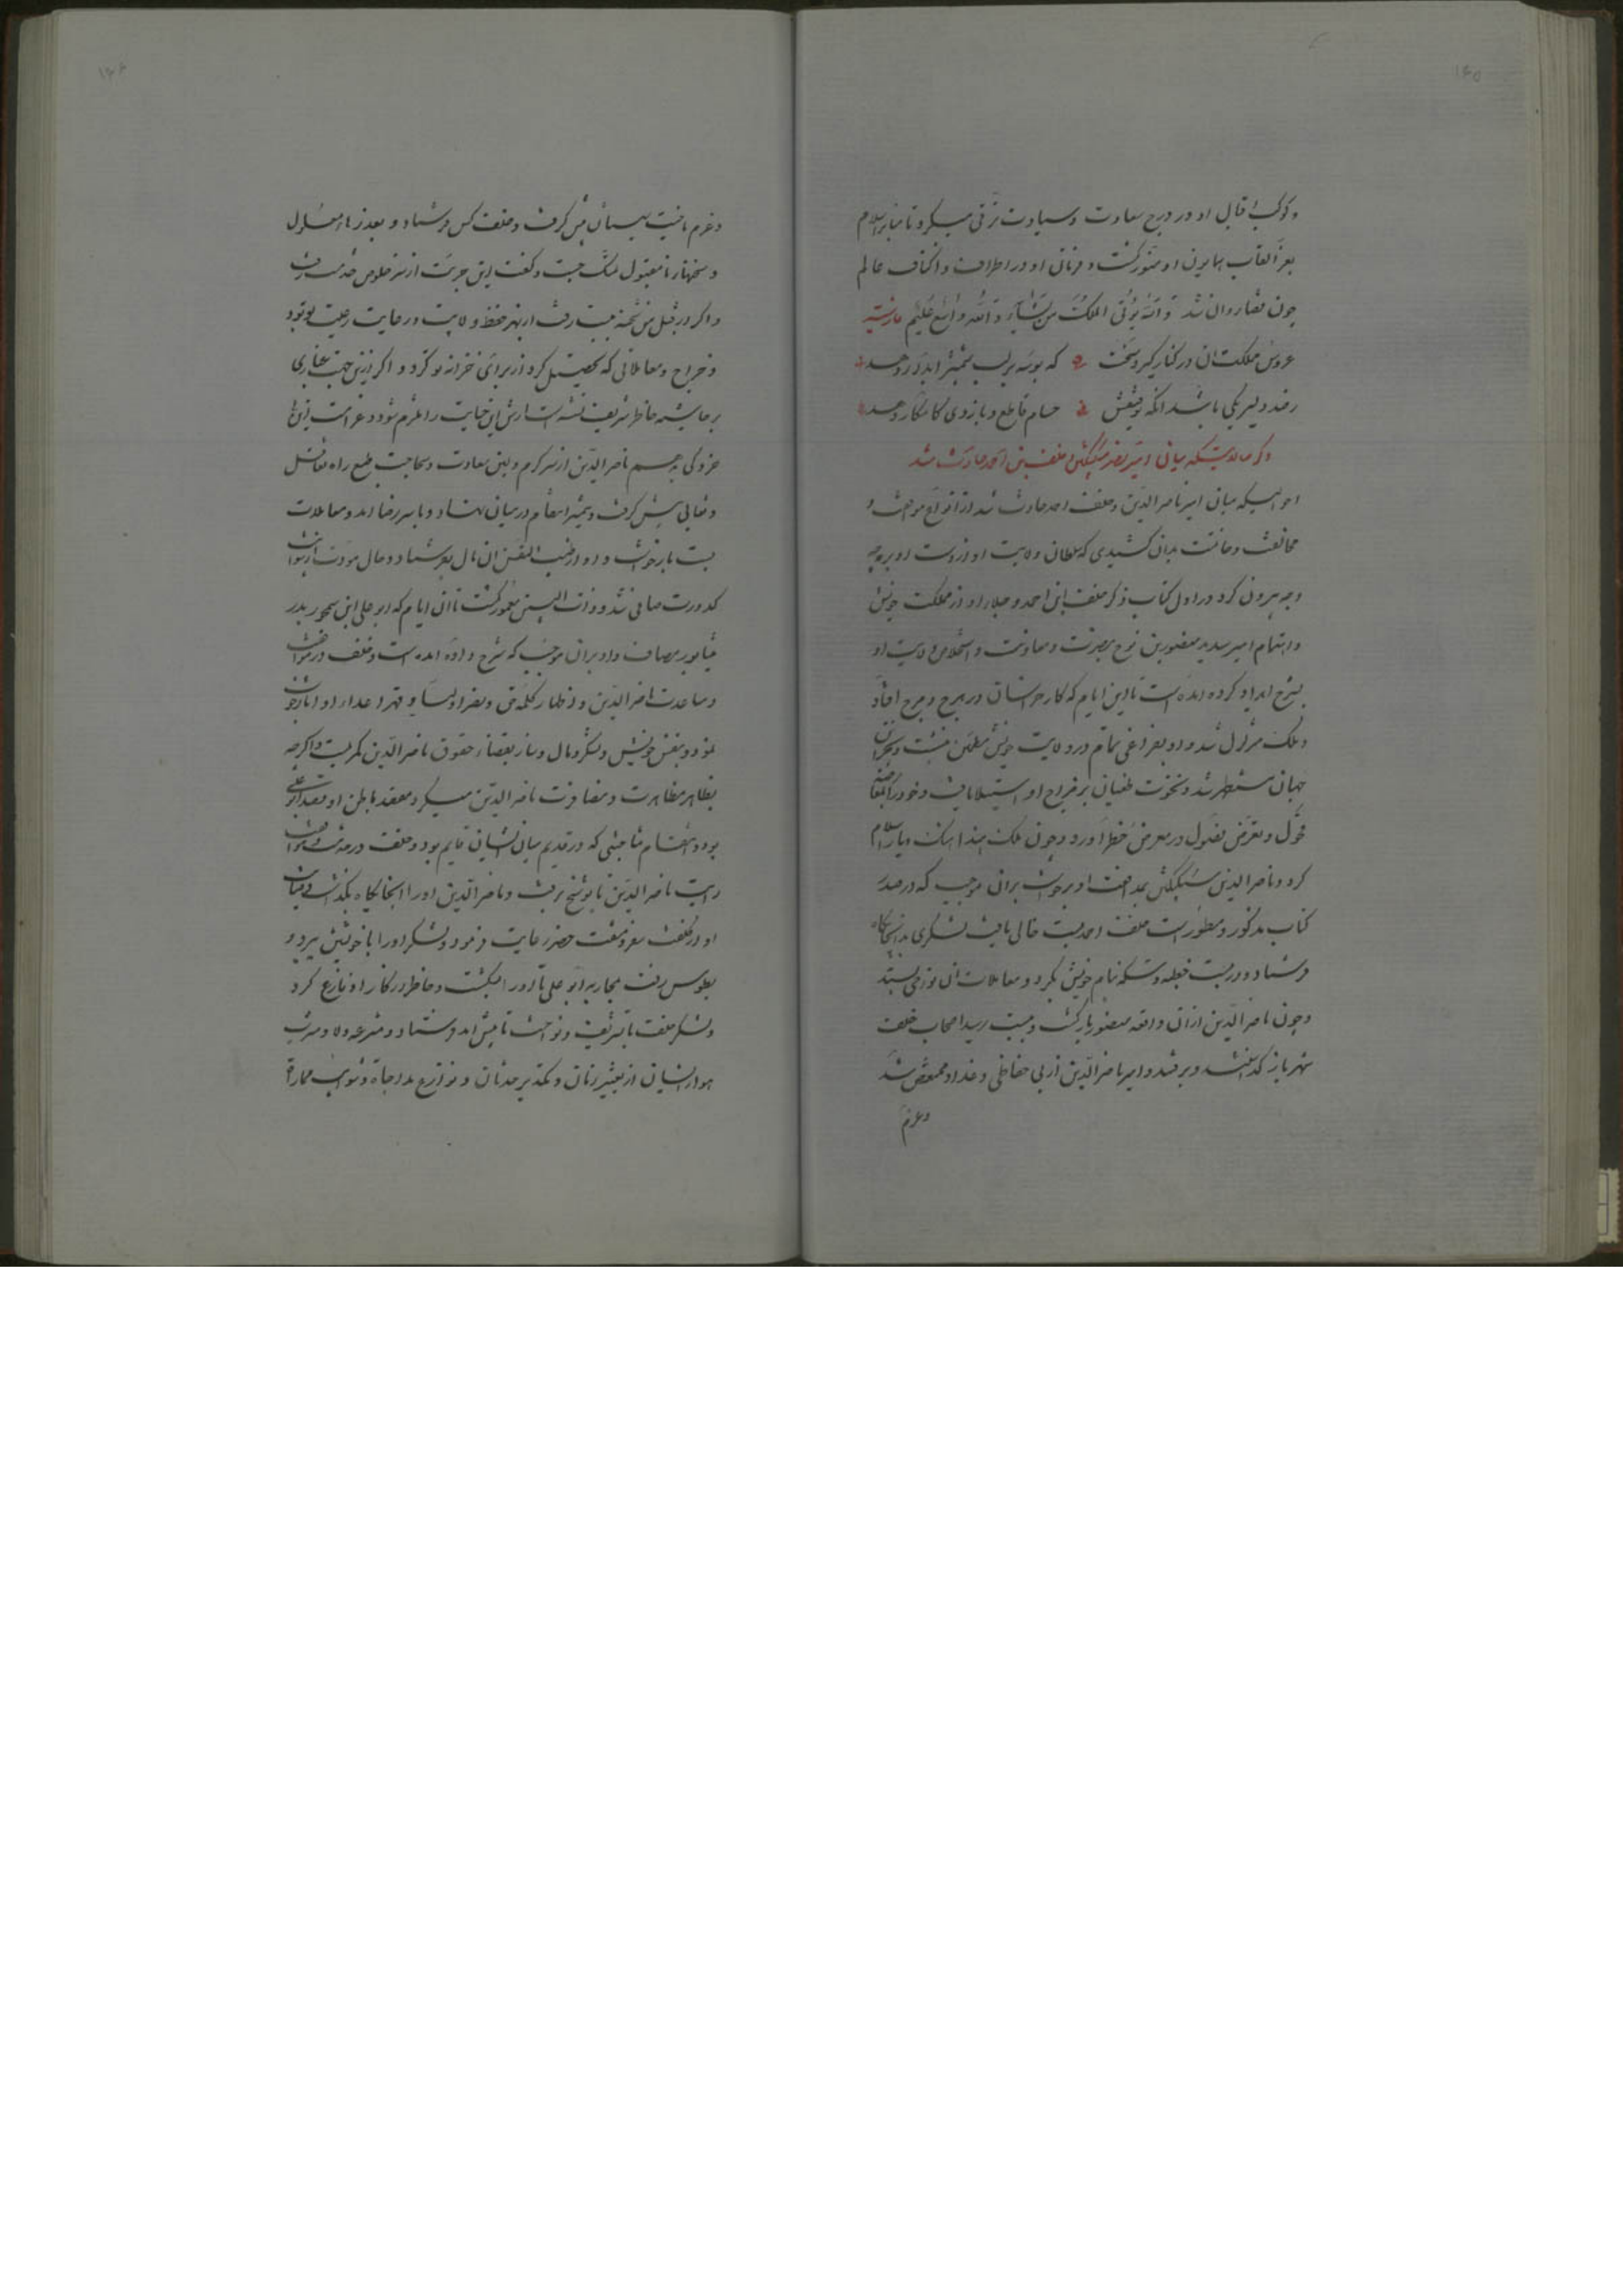 ۱۴۵
وکوکب اقبال او در درج سعادت وسیادت ترقی میکرد تا منابر اسلام
بعز القاب همایون او منور کشت و فرمان او در اطراف واکناف عالم
چون قضا روان شد والله یؤتی الملک من یشاء والله واسع علیم
عروس مملکت ان در کنار کیرد سخت که بوسه بر لب شمشیر ابدار دهد
حسام قاطع و بازوی کامکار دهد
ذکر حالاتیکه میان امیر ناصر سبکتکین و خلف بن احمد حادث شد
احوالیکه میان امیر ناصر الدین وخلف احمد حادث شد از انواع موافقت و
مخالفت بدان کشیدی که سلطان ولایت او از دست او برچه
وجه بیرون کرد در اول کتاب ذکر خلف ابن احمد و جلاء او از مملکت خویش
واهتمام امیر سدید منصور بن نوح بنصرت ومعاونت واستخلاص ولایت او
بشرح ایراد کرده امده است تا این ایام که کار خراسان در هرج و مرج افتاد
وملک متزلزل شد و او بفراغی تمام در ولایت خویش مطمئن بنشست
جهان مستظهر شد و نخوت طغیان بر مزاج او استیلا یافت وخود را
وتعرض فضول در معرض خطر اورد وچون ملک هند اهنک دیار اسلام
کرد وناصر الدین سبکتکین بمدافعت او برخواست بران موجب که در صدر
کتاب مذکور و مسطور است خلف احمد بست خالی یافت لشکری بدانجایکاه
فرستاد و در بست خطبه وسکه بنام خویش بکرد و معاملات ان نواحی بستد
وچون ناصر الدین از ان واقعه منصور بازکشت وببست رسید اصحاب خلف
شهر باز کذاشتند و برفتند وامیر ناصر الدین از بی حفاظی وغدر او ممتعض شد
وعزم
۱۴۶
وعزم تاختن بسیستان پیش کرفت وخلف کس فرستاد و بعذرها
وسخنهاء نا مقبول تمسک جست وکفت این حرکت از سر خلوص خدمت رفت
واکر در قبل من شحنه ببست رفت از بهر حفظ ولایت ورعایت رعیت بود
وخراج ومعاملاتی که تحصیل کرد از برای خزانه تو کرد و اکر ازین جهت غباری
بر حاشیه خاطر شریف نشسته است ارش این جنایت را ملتزم شود و غرامت این
ناصر الدین از سر کرم و سماحت طبع راه تغافل
وتغابی پیش کرفت وشمشیر انتقام در میان نهاد و با سر رضا امد ومعاملات
بست باز خواست و او از طیب النفس ان مال بفرستاد و حال مودت از شوایب
کدورت صافی شد و ذات البین معمور کشت تا ان ایام که ابو علی ابن سیمجور بدر
نیشابور مصاف داد بران موجب که شرح داده امده است وخلف در موافقت
ومساعدت ناصر الدین و اظهار کلمه حق ونصر اولیا و قهر اعداء او اثار خوب
نمود و بنفس خویش ولشکر ومال وساز بقضاء حقوق ناصر الدین کمر بست واکرچه
بظاهر مظاهرت ومعاونت ناصر الدین میکرد مقصد باطن او قصد ابو علی
بود وانتقام مناقشتی که در قدیم میان ایشان قایم بود وخلف در خدمت
رایت ناصر الدین تا پوشنج برفت وناصر الدین او را انجایکاه بکذاشت
او در کلفت سفر ومشقت حضر رعایت فرمود ولشکر او را با خویشتن ببرد و
بطوس رفت بمحاربه ابو علی تا او را بشکست وخاطر از کار او فارغ کرد
ولشکر خلف با تشریف ونواخت تا پیش امد فرستاد و مشرعه ولا ومشرب
هواء ایشان از تغییر زمان و تکدیر حدثان